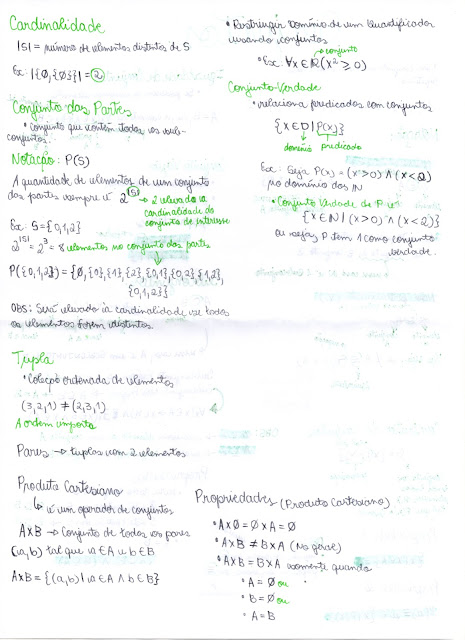 Cardinalidade
|S| = número de elementos distintos de S
Ex: |{∅, {∅}}| = 2
Conjunto das Partes
• conjunto que contém todos os sub-
conjuntos.
Notação: P(S)
A quantidade de elementos de um conjunto
das partes sempre é 2^|S|
→ 2 elevado à
cardinalidade do
conjunto de interesse
Ex: S = {0,1,2}
2^|S| = 2^3 = 8 elementos no conjunto das partes
P({0,1,2}) = {∅, {0}, {1}, {2}, {0,1}, {0,2}, {1,2},
{0,1,2}}
OBS: Será elevado à cardinalidade se todos
os elementos forem distintos.
Tupla
• Coleção ordenada de elementos
(3,2,1) ≠ (2,3,1)
A ordem importa
Pares → tuplas com 2 elementos
Produto Cartesiano
↳ é um operador de conjuntos
AxB → Conjunto de todos os pares
(a,b) tal que a ∈ A e b ∈ B
AxB = {(a,b) | a ∈ A ∧ b ∈ B}
• Restringir domínio de um quantificador
usando conjuntos
→ conjunto
• Ex: ∀x ∈ ℝ (x² ≥ 0)
Conjunto-Verdade
• relaciona predicados com conjuntos
{x ∈ D | P(x)}
domínio predicado
Ex: Seja P(x) = (x > 0) ∧ (x < 2)
no domínio dos ℕ
• Conjunto Verdade de P é
{x ∈ ℕ | (x > 0) ∧ (x < 2)}
ou seja, P tem 1 como conjunto
verdade.
Propriedades (Produto Cartesiano)
• A x ∅ = ∅ x A = ∅
• A x B ≠ B x A (No geral)
• A x B = B x A somente quando
• A = ∅ ou
• B = ∅ ou
• A = B